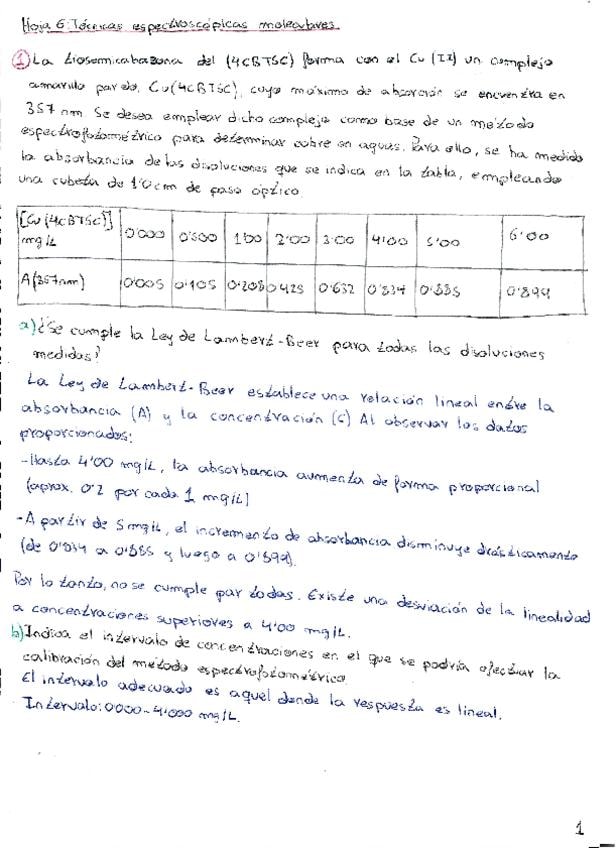 Hoja 6: Técnicas espectroscópicas moleculares.
① La tiosemicabazona del (4CBTSC) forma con el Cu (II) un complejo
amarillo pardo, Cu(4CBTSC), cuyo máximo de absorción se encuentra en
357 nm. Se desea emplear dicho complejo como base de un método
espectrofotométrico para determinar cobre en aguas. Para ello, se ha medido
la absorbancia de las disoluciones que se indica en la tabla, empleando
una cubeta de 1'0 cm de paso óptico.
[Cu(4CBTSC)] mg/L 0'000 0'500 1'00 2'00 3'00 4'00 5'00 6'00
A(357nm) 0'005 0'105 0'208 0'425 0'632 0'834 0'885 0'899
a) ¿Se cumple la Ley de Lambert-Beer para todas las disoluciones
medidas?
La Ley de Lambert-Beer establece una relación lineal entre la
absorbancia (A) y la concentración (c) Al observar los datos
proporcionados:
-Hasta 4'00 mg/L, la absorbancia aumenta de forma proporcional
(aprox. 0'2 por cada 1 mg/L)
-A partir de 5 mg/L, el incremento de absorbancia disminuye drásticamente
(de 0'834 a 0'885 y luego a 0'899).
Por lo tanto, no se cumple par todas. Existe una desviación de la linealidad
a concentraciones superiores a 4'00 mg/L.
b) Indica el intervalo de concentraciones en el que se podría efectuar la
calibración del método espectrofotométrico.
El intervalo adecuado es aquel donde la respuesta es lineal.
Intervalo: 0'000-4'000 mg/L.
1